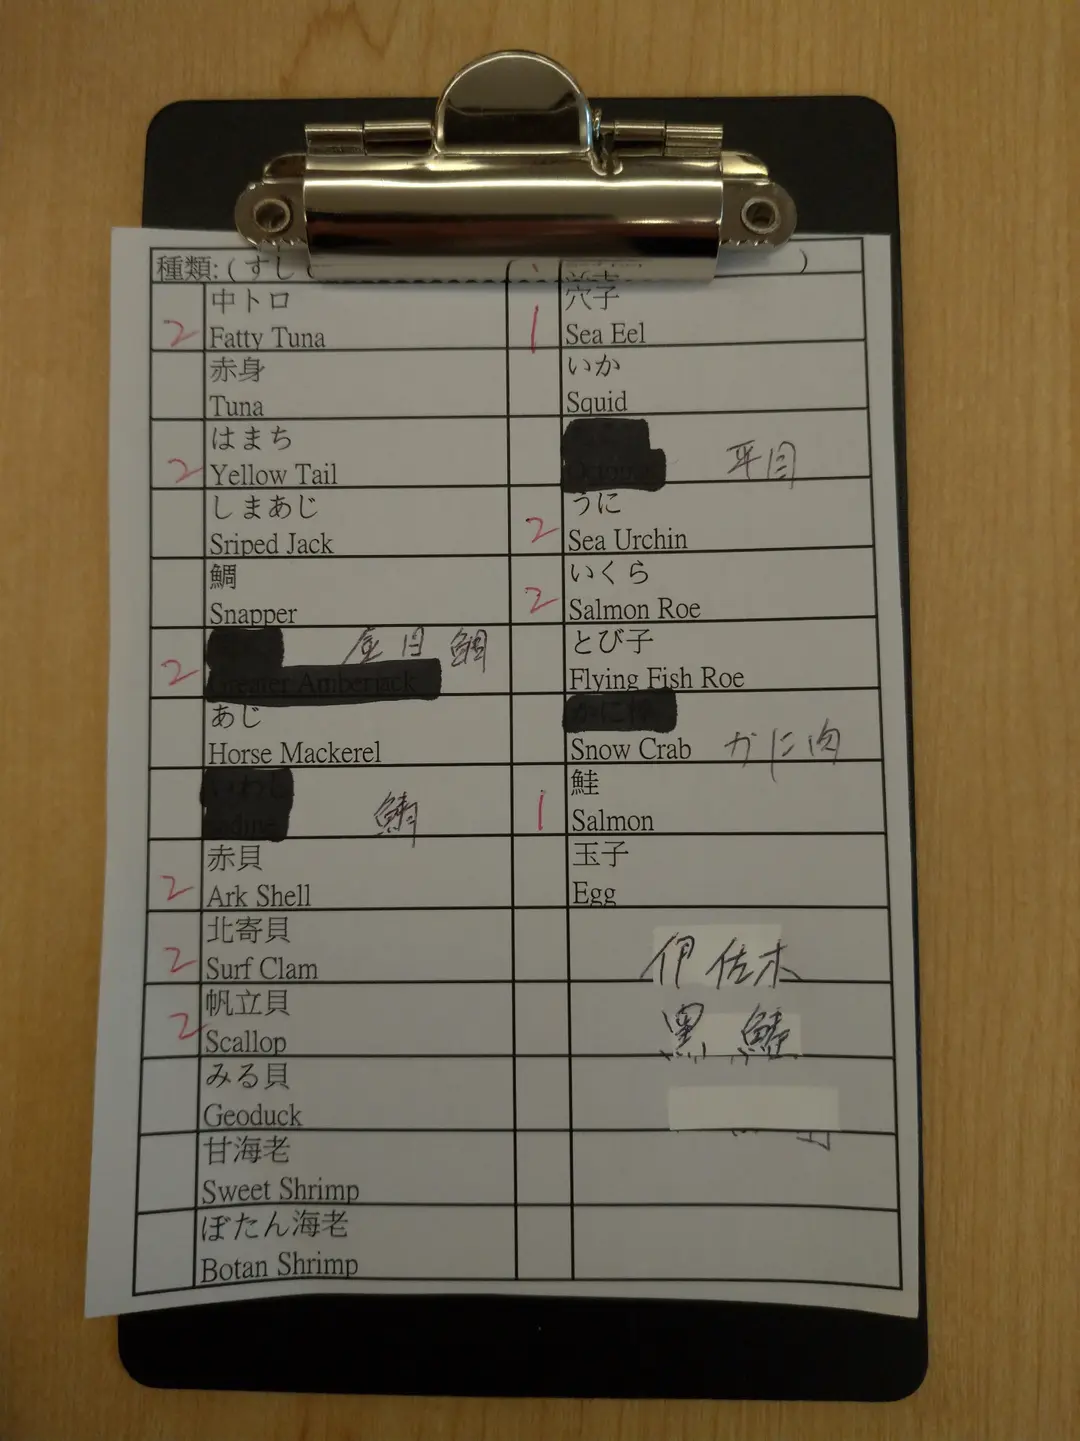 種類: ( すし
)
2
中トロ
Fatty Tuna
赤身
Tuna
2
はまち
Yellow Tail
しまあじ
Sriped Jack
鯛
Snapper
2
目 鯛
Greater Amberjack
あじ
Horse Mackerel
いわし
鯖
2
赤貝
Ark Shell
2
北寄貝
Surf Clam
2
帆立貝
Scallop
みる貝
Geoduck
甘海老
Sweet Shrimp
ぼたん海老
Botan Shrimp
1
穴子
Sea Eel
いか
Squid
平目
2
うに
Sea Urchin
2
いくら
Salmon Roe
とび子
Flying Fish Roe
Snow Crab かに肉
1
鮭
Salmon
玉子
Egg
伊佐木
黑